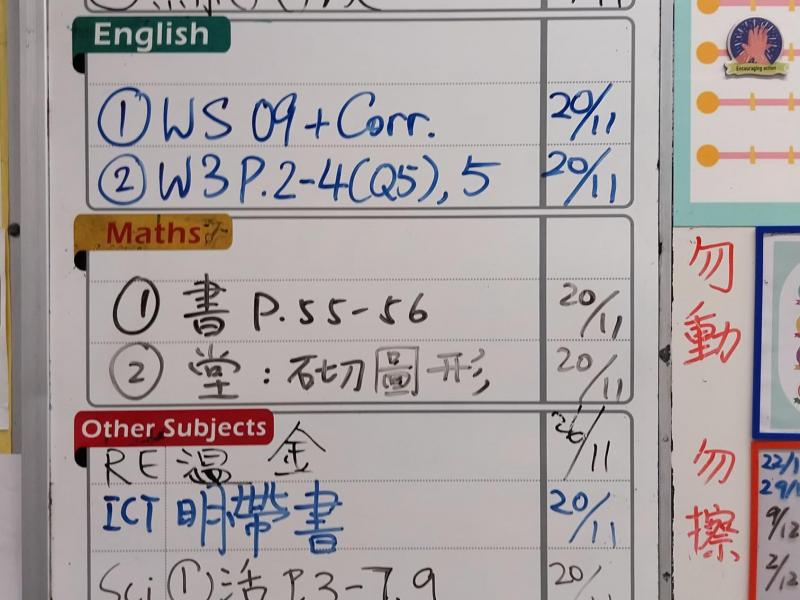 English
① WS 09 + Corr. 20/11
② W3 P.2-4(Q5), 5 20/11
Maths
① 書 P.55-56 20/11
② 堂：砌圖形 20/11
Other Subjects
RE 溫 金 26/11
ICT 明帶書 20/11
Sci ① 活 P.3-7, 9 20/11
Encouraging action
勿動
勿擦
22/1
29/1
9/12
2/12